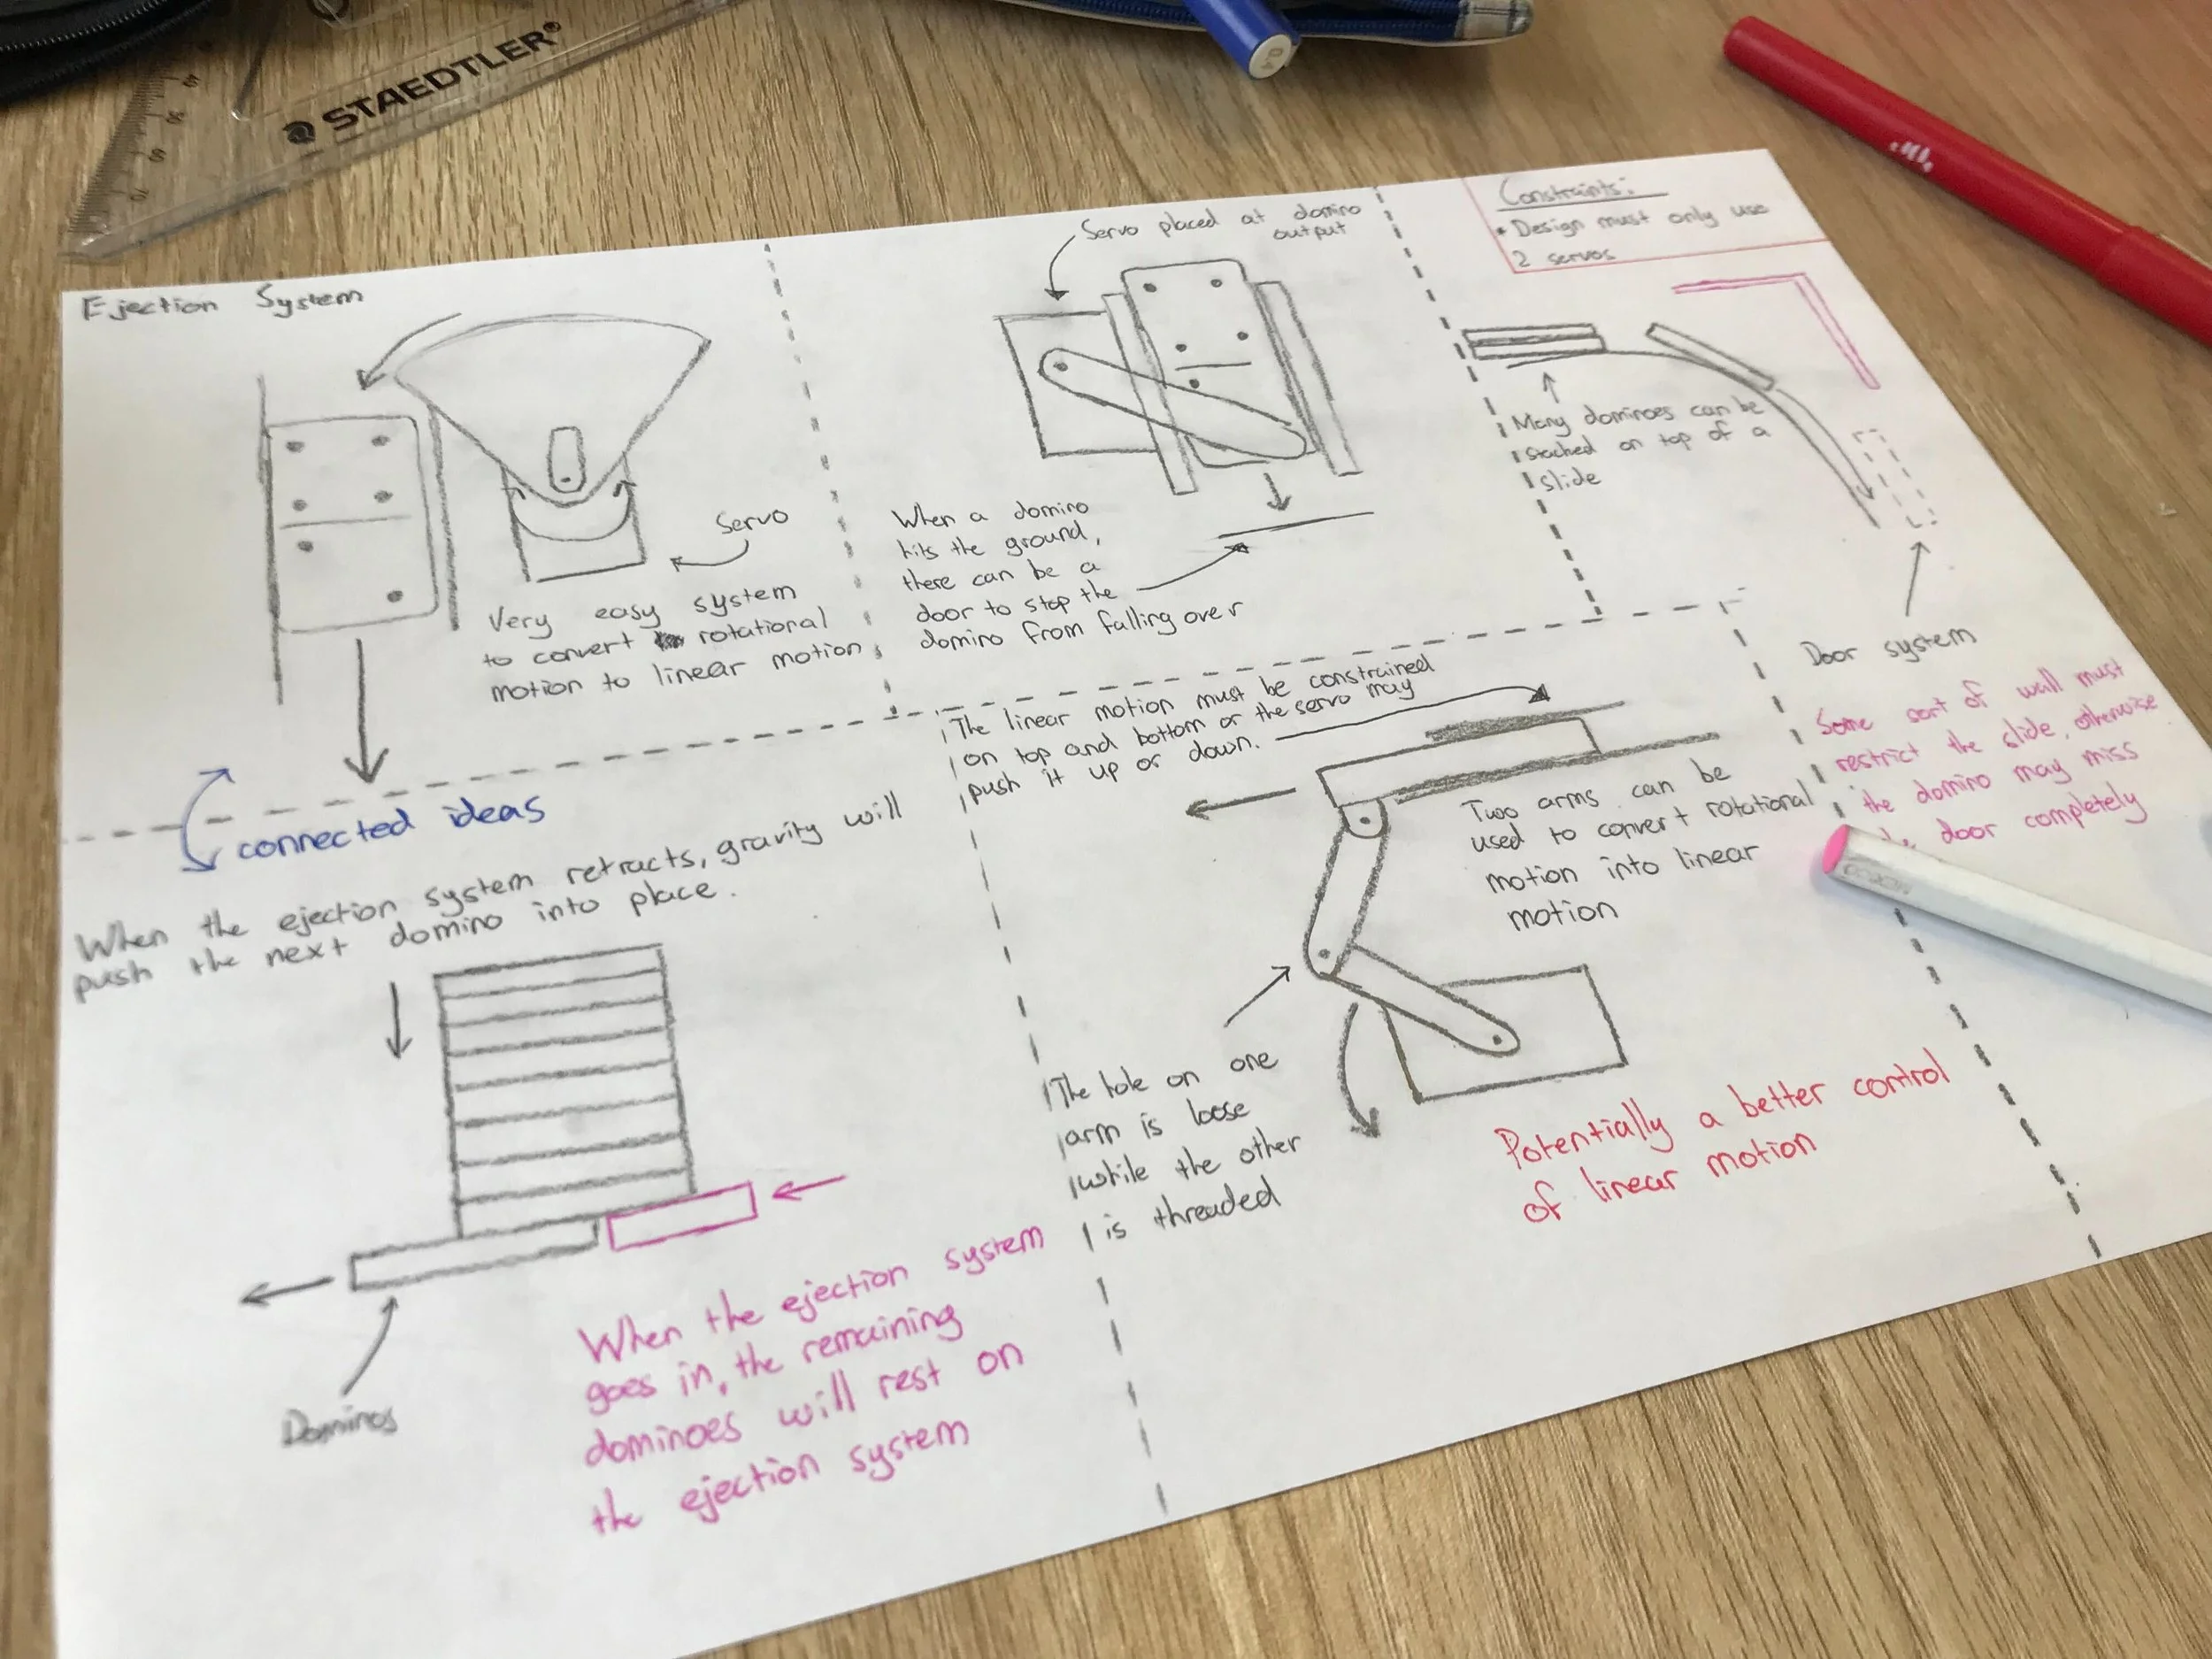 STAEDTLER®
0.4
Ejection System
Servo
Very easy system
to convert rotational
motion to linear motion
Servo placed at domino
output
When a domino
hits the ground,
there can be a
door to stop the
domino from falling over
Constraints:
• Design must only use
2 servos
Many dominoes can be
stacked on top of a
slide
Door system
Some sort of wall must
restrict the slide, otherwise
the domino may miss
door completely
connected ideas
When the ejection system retracts, gravity will
push the next domino into place.
Dominos
When the ejection system
goes in, the remaining
dominoes will rest on
the ejection system
The linear motion must be constrained
on top and bottom or the servo may
push it up or down.
Two arms can be
used to convert rotational
motion into linear
motion
The hole on one
arm is loose
while the other
is threaded
Potentially a better control
of linear motion